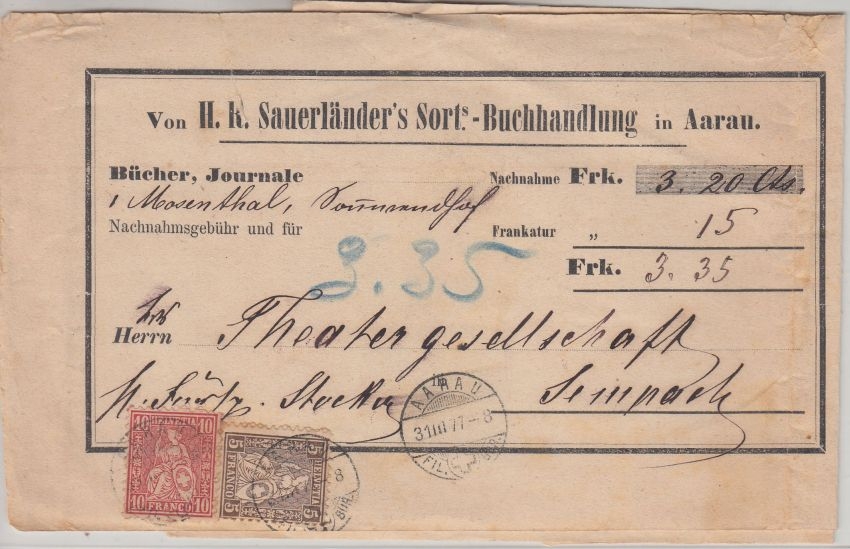 Von H. R. Sauerländer's Sort.s-Buchhandlung in Aarau.
Bücher, Journale Nachnahme Frk. 3. 20 Cts.
1 Mosenthal, Sonnwendhof
Nachnahmsgebühr und für Frankatur „ 15
Frk. 3. 35
3.35
Herrn Theatergesellschaft
in
Sempach
AARAU
31 III 77-8
FIL.
10 HELVETIA 10
10 FRANCO 10
5 HELVETIA 5
5 FRANCO 5
8